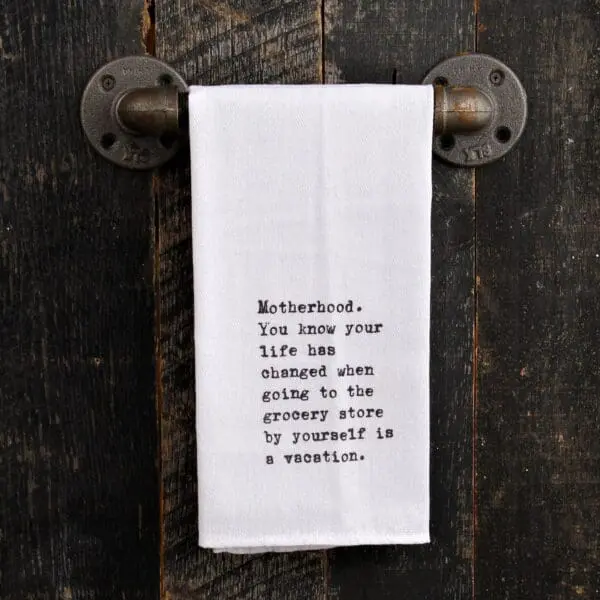 Motherhood.
You know your
life has
changed when
going to the
grocery store
by yourself is
a vacation.